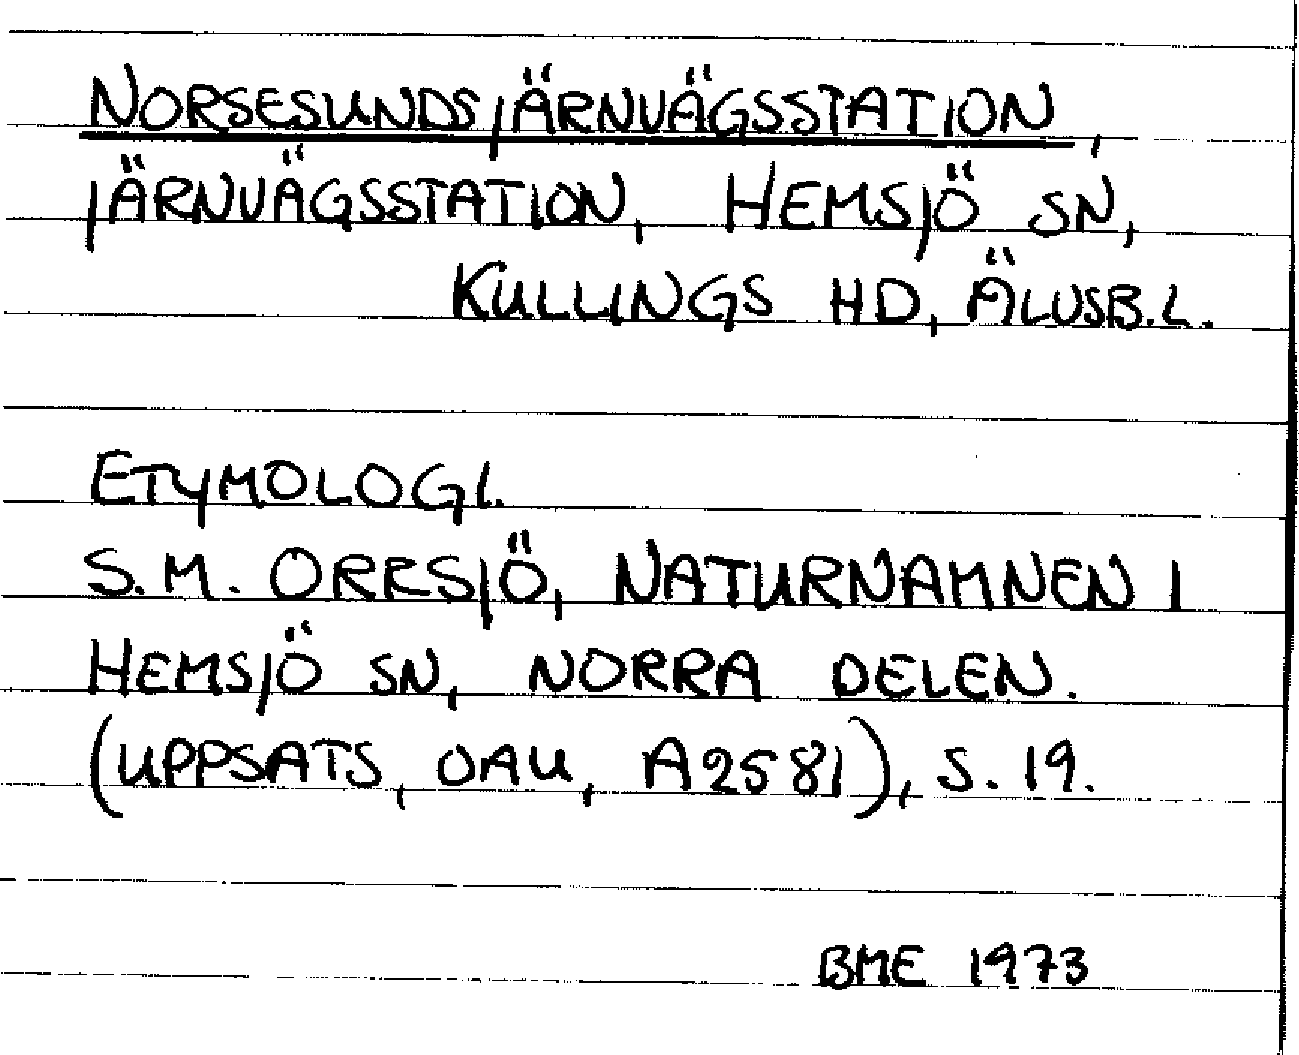 NORSESUNDS JÄRNVÄGSSTATION,
JÄRNVÄGSSTATION, HEMSJÖ SN,
KULLINGS HD, ÄLVSB.L.
ETYMOLOGI.
S.M. ORRSJÖ, NATURNAMNEN I
HEMSJÖ SN, NORRA DELEN.
(UPPSATS, OAU, A2581), S. 19.
BME 1973